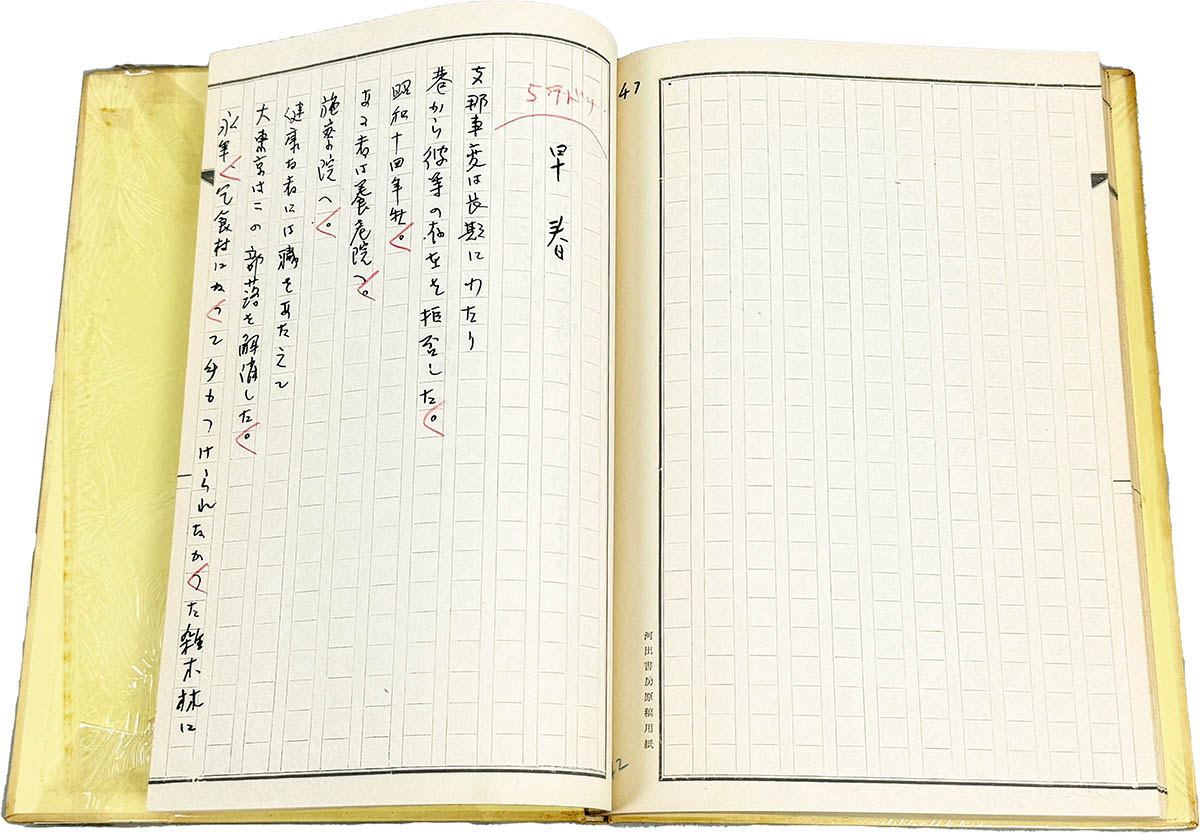 47
5行ドリ
早春
支那事変は長期にわたり
巷から彼等の存在を拒否した。
昭和十四年、
ある者は養老院へ。
施療院へ。
健康な者には職をあたえて
大東京はこの部落を解消した。
永年、乞食村になって手もつけられなかった雑木林に
河出書房原稿用紙